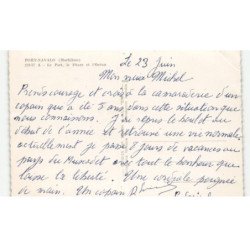 PORT-NAVALO (Morbihan)
Le Port, le Phare et l'Océan
Le 23 Juin
Mon vieux Michel
Prends courage et crois à la camaraderie d'un
copain qui a été 5 ans dans cette situation que
nous connaissons. J'ai repris le boulot du
début de l'année et retrouve une vie normale
actuellement je passe 8 jours de vacances au
pays du Muscadet avec tout le bonheur que
laisse la liberté. Une cordiale poignée
de main. Un copain